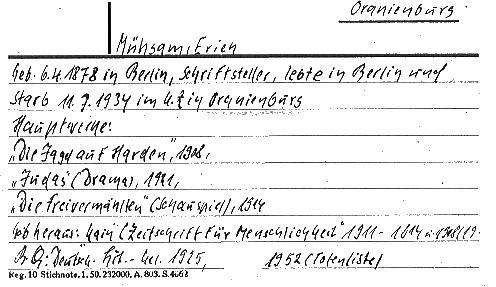 Oranienburg
Mühsam, Erich
Geb. 6.4.1878 in Berlin, Schriftsteller, lebte in Berlin und
starb 11.7.1934 im K.Z. in Oranienburg
Hauptwerke:
„Die Jagd auf Harden", 1908,
„Judas" (Drama), 1921,
„Die Freivermählten" (Schauspiel), 1914
Gab heraus: Kain (Zeitschrift für Menschlichkeit" 1911 - 1914 u. 1918/19.
1925, 1952 (Totenliste)
Reg. 10 Stichnote. 1. 50. 232000. A. 803. S. 4662